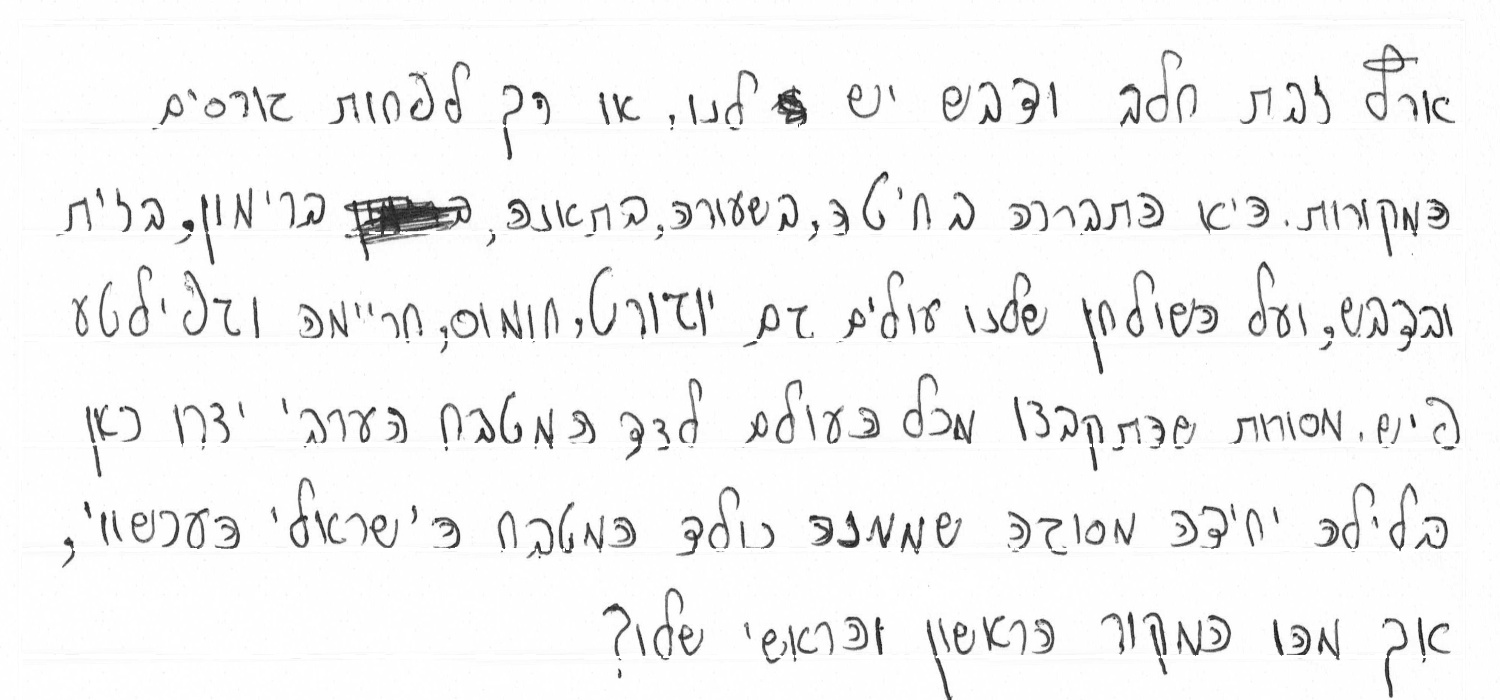 ארץ זבת חלב ודבש יש לנו, או כך לפחות גורסים
המקורות. היא התברכה בחיטה, בשעורה, בתאנה, ברימון, בזית
ובדבש, ועל השולחן שלנו עולים גם יוגורט, חומוס, חריימה וגפילטע
פיש. מסורות שהתקבצו מכל העולם לצד המטבח הערבי יצרו כאן
בלילה יחידה מסוגה שממנה נולד המטבח הישראלי העכשווי,
אך מהו המקור הראשון והראשי שלו?